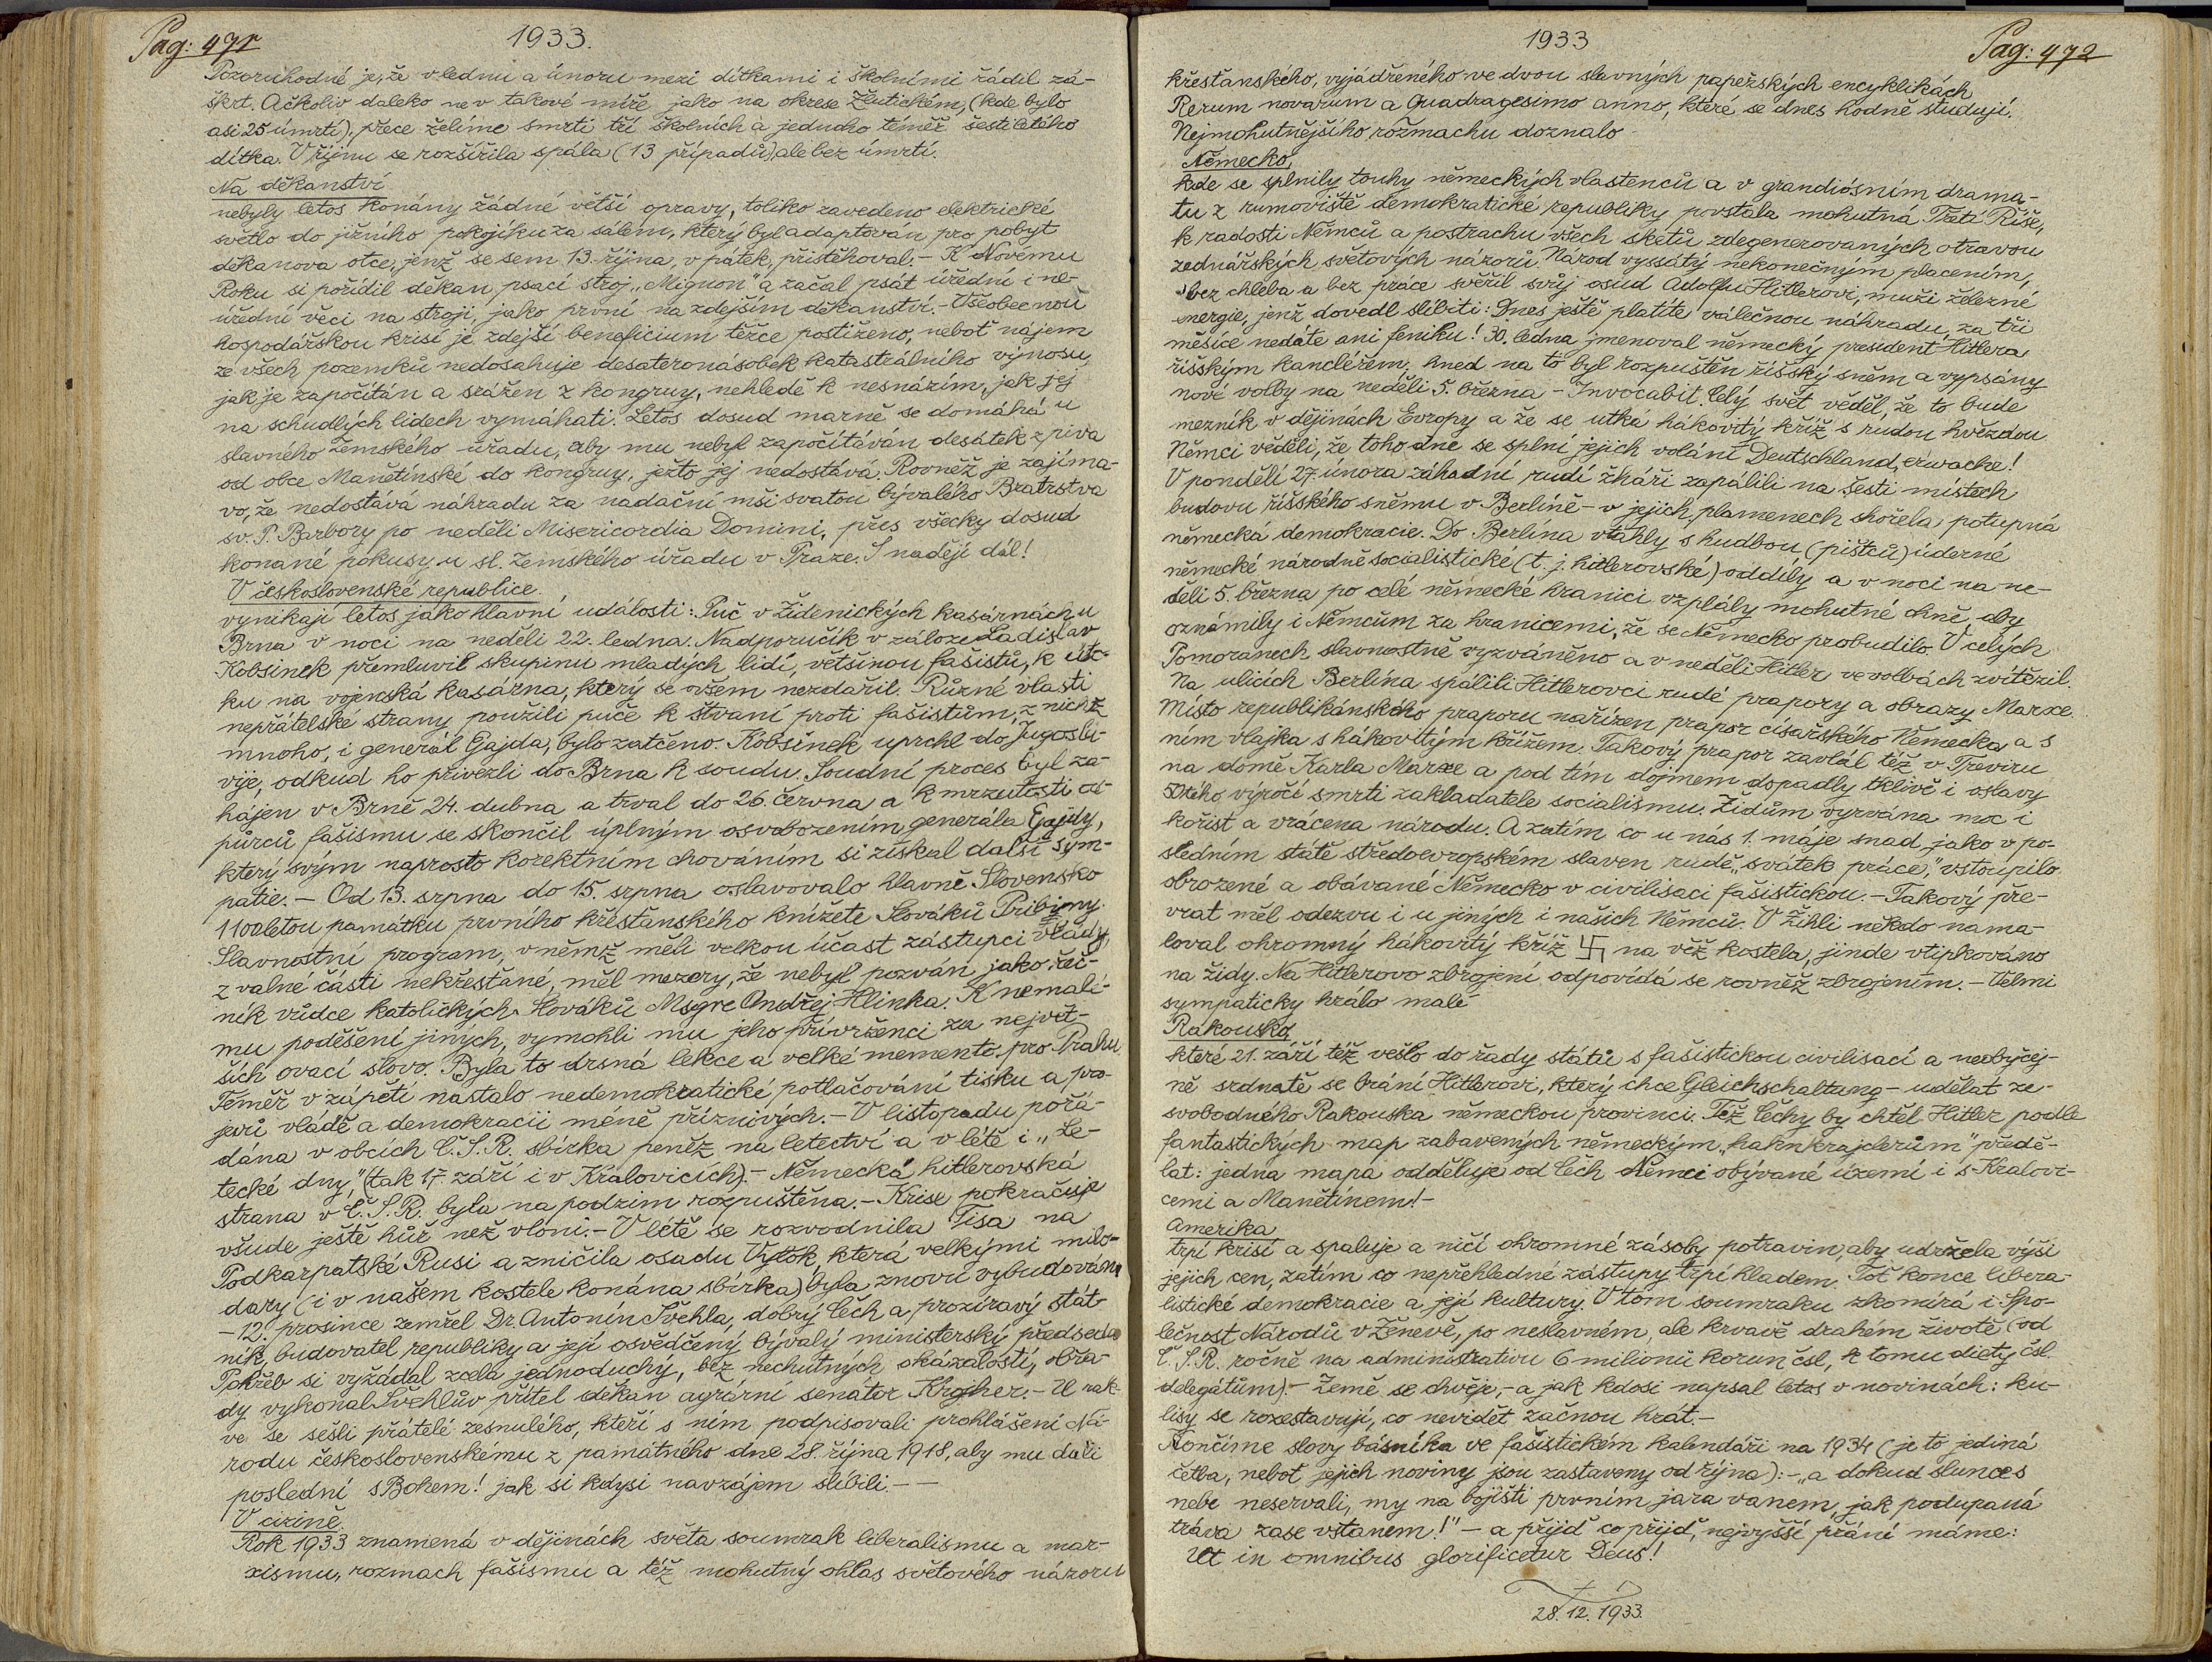 Pag: 471
1933.
Pozoruhodné je, že v lednu a únoru mezi dítkami i školními řádil zá-
škrt. Ačkoliv daleko ne v takové míře jako na okrese Žlutickém, (kde bylo
asi 25 úmrtí), přece želíme smrti tří školních a jednoho téměř šestiletého
dítka. V říjnu se rozšířila spála (13 případů), ale bez úmrtí.
Na děkanství
nebyly letos konány žádné větší opravy, toliko zavedeno elektrické
světlo do jižního pokojíku za sálem, který byl adaptován pro pobyt
děkanova otce, jenž se sem 13. října, v pátek, přistěhoval. - K Novému
Roku si pořídil děkan psací stroj „Mignon" a začal psát úřední i ne-
úřední věci na stroji, jako první na zdejším děkanství. - Všeobecnou
hospodářskou krisí je zdejší beneficium těžce postiženo, neboť nájem
ze všech pozemků nedosahuje desateronásobek katastrálního výnosu,
jak je započítán a srážen z kongruy, nehledě k nesnázím, jak jej
na schudlých lidech vymáhati. Letos dosud marně se domáhá u
slavného Zemského úřadu, aby mu nebyl započítáván desátek z piva
od obce Manětínské do kongruy, ježto jej nedostává. Rovněž je zajíma-
vo, že nedostává náhradu za nadační mši svatou bývalého Bratrstva
sv. P. Barbory po neděli Misericordia Domini, přes všecky dosud
konané pokusy u sl. Zemského úřadu v Praze. S nadějí dál!
V československé republice.
vynikají letos jako hlavní události: Puč v Židenických kasárnách u
Brna v noci na neděli 22. ledna. Nadporučík v záloze Ladislav
Kobsinek přemluvil skupinu mladých lidí, většinou fašistů, k úto-
ku na vojenská kasárna, který se ovšem nezdařil. Různé vlasti
nepřátelské strany použili puče k štvaní proti fašistům, z nichž
mnoho, i generál Gajda, bylo zatčeno. Kobsinek uprchl do Jugoslá-
vije, odkud ho přivezli do Brna k soudu. Soudní proces byl za-
hájen v Brně 24. dubna a trval do 26. června a k mrzutosti od-
půrců fašismu se skončil úplným osvobozením generála Gajdy,
který svým naprosto korektním chováním si získal další sym-
patie. - Od 13. srpna do 15. srpna oslavovalo hlavně Slovensko
1100letou památku prvního křesťanského knížete Slováků Pribiny.
Slavnostní program, v němž měli velkou účast zástupci vlády,
z valné části nekřesťané, měl mezery, že nebyl pozván jako řeč-
ník vůdce katolických Slováků Msgre Ondřej Hlinka. K nemalé-
mu poděšení jiných, vymohli mu jeho přívrženci za největ-
ších ovací slovo. Byla to drsná lekce a velké memento pro Prahu
Téměř v zápětí nastalo nedemokratické potlačování tisku a pro-
jevů vládě a demokracii méně příznivých. - V listopadu pořá-
dána v obcích Č.S.R. sbírka peněz na letectví a v létě i „Le-
tecké dny," (tak 17. září i v Kralovicích). - Německá hitlerovská
strana v Č.S.R. byla na podzim rozpuštěna. - Krise pokračuje
všude ještě hůř než vloni. - V létě se rozvodnila Tisa na
Podkarpatské Rusi a zničila osadu Vylok, která velkými milo-
dary (i v našem kostele konána sbírka) byla znovu vybudována
- 12. prosince zemřel Dr. Antonín Švehla, dobrý Čech a prozíravý stát-
ník, budovatel republiky a její osvědčený bývalý ministerský předseda
Pohřeb si vyžádal zcela jednoduchý, bez nechutných okázalostí, obřa-
dy vykonal Švehlův přítel děkan agrární senátor Krojher. - U rak-
ve se sešli přátelé zesnulého, kteří s ním podpisovali prohlášení Ná-
rodu československému z památného dne 28. října 1918, aby mu dali
poslední sBohem! jak si kdysi navzájem slíbili. -
V cizině.
Rok 1933 znamená v dějinách světa soumrak liberalismu a mar-
xismu, rozmach fašismu a též mohutný ohlas světového názoru
1933
Pag: 472
křesťanského, vyjádřeného ve dvou slavných papežských encyklikách
Rerum novarum a Quadragesimo anno, které se dnes hodně studují.
Nejmohutnějšího rozmachu doznalo
Německo,
kde se splnily touhy německých vlastenců a v grandiósním drama-
tu z rumoviště demokratické republiky povstala mohutná Třetí Říše,
k radosti Němců a postrachu všech sketů zdegenerovaných otravou
zednářských světových názorů. Národ vyssátý nekonečným placením,
bez chleba a bez práce svěřil svůj osud Adolfu Hitlerovi, muži železné
energie, jenž dovedl slíbiti: Dnes ještě platíte válečnou náhradu, za tři
měsíce nedáte ani feniku! 30. ledna jmenoval německý president Hitlera
říšským kancléřem, hned na to byl rozpuštěn říšský sněm a vypsány
nové volby na neděli 5. března - Invocabit. Celý svět věděl, že to bude
mezník v dějinách Evropy a že se utká hákovitý kříž s rudou hvězdou
Němci věděli, že toho dne se splní jejich volání Deutschland, erwache!
V pondělí 27. února záhadní rudí žháři zapálili na šesti místech
budovu říšského sněmu v Berlíně - v jejich plamenech shořela potupná
německá demokracie. Do Berlína vtáhly s hudbou (pištců) úderné
německé národně socialistické (t. j. hitlerovské) oddíly a v noci na ne-
děli 5. března po celé německé hranici vzplály mohutné ohně, aby
oznámily i Němcům za hranicemi, že se Německo probudilo. V celých
Pomořanech slavnostně vyzváněno a v neděli Hitler ve volbách zvítězil.
Na ulicích Berlína spálili Hitlerovci rudé prapory a obrazy Marxe.
Místo republikánského praporu nařízen prapor císařského Německa a s
ním vlajka s hákovitým křížem. Takový prapor zavlál též v Treviru
na domě Karla Marxe a pod tím dojmem dopadly tklivě i oslavy
50tého výročí smrti zakladatele socialismu. Židům vyrvána moc i
kořist a vrácena národu. A zatím co u nás 1. máje snad jako v po-
sledním státě středoevropském slaven rudě „svátek práce," vstoupilo
obrozené a obávané Německo v civilisaci fašistickou. - Takový pře-
vrat měl odezvu i u jiných i našich Němců. V Žihli někdo nama-
loval ohromný hákovitý kříž 卐 na věž kostela, jinde vtipkováno
na židy. Na Hitlerovo zbrojení odpovídá se rovněž zbrojením. - Velmi
sympaticky hrálo malé
Rakousko,
které 21. září též vešlo do řady států s fašistickou civilisací a neobyčej-
ně srdnatě se brání Hitlerovi, který chce Gleichschaltung - udělat ze
svobodného Rakouska německou provinci. Též Čechy by chtěl Hitler podle
fantastických map zabavených německým „haknkrajclerům" předě-
lat: jedna mapa odděluje od Čech Němci obývané území i s Kralovi-
cemi a Manětínem! -
Amerika
trpí krisí a spaluje a ničí ohromné zásoby potravin, aby udržela výši
jejich cen, zatím co nepřehledné zástupy trpí hladem. Toť konce libera-
listické demokracie a její kultury. V tom soumraku zkomírá i Spo-
lečnost Národů v Ženevě, po neslavném, ale krvavě drahém životě (od
Č.S.R. ročně na administrativu 6 milionů korun čsl, k tomu diety čsl.
delegátům). - Země se chvěje, - a jak kdosi napsal letos v novinách: ku-
lisy se rozestavují, co nevidět začnou hrát. -
Končíme slovy básníka ve fašistickém kalendáři na 1934 (je to jediná
četba, neboť jejich noviny jsou zastaveny od října): - „a dokud slunces
nebe neservali, my na bojišti prvním jara vanem, jak podupaná
tráva zase vstanem!" - a přijď co přijď, nejvyšší přání máme:
Ut in omnibus glorificetur Deus!
28. 12. 1933.